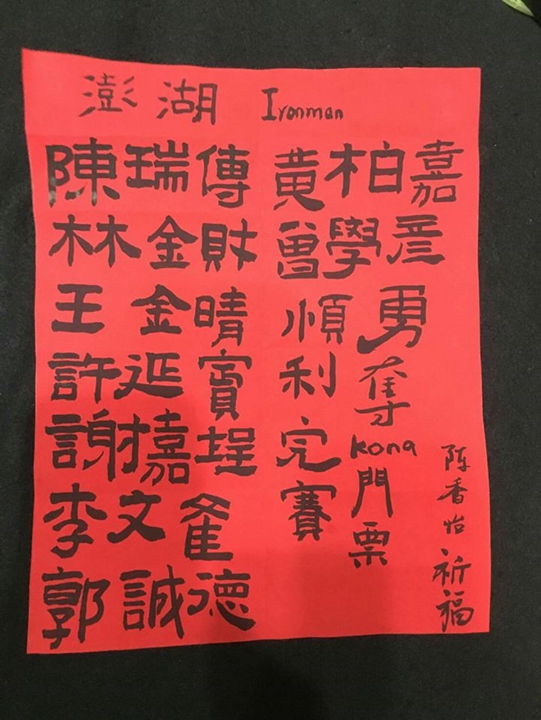 澎湖 Ironman
陳瑞傳
林金財
王金晴
許延
謝嘉埕
李文
郭誠德
黃柏嘉
曾學彥
順利完賽
勇奪kona門票
陈香怡祈福